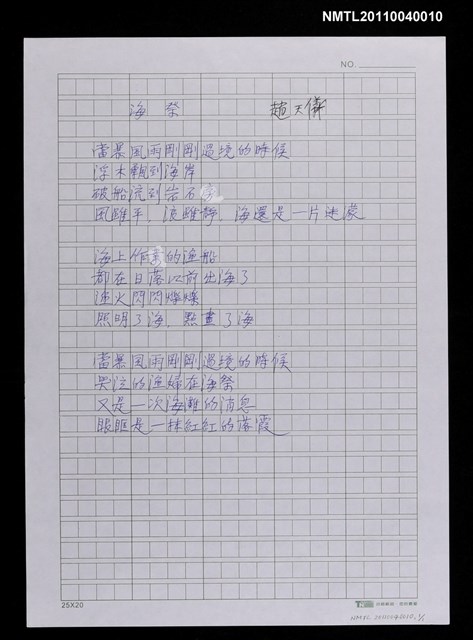 NMTL20110040010
NO.
海祭 趙天儀
當暴風雨剛剛過境的時候
浮木飄到海岸
破船流到岩石
風雖平，浪雖靜，海還是一片迷濛
海上作業的漁船
都在日落以前出海了
漁火閃閃燦燦
照明了海，點畫了海
當暴風雨剛剛過境的時候
哭泣的漁婦在海祭
又是一次海難的消息
眼眶是一抹紅紅的落霞
25X20
NMTL 20110040010